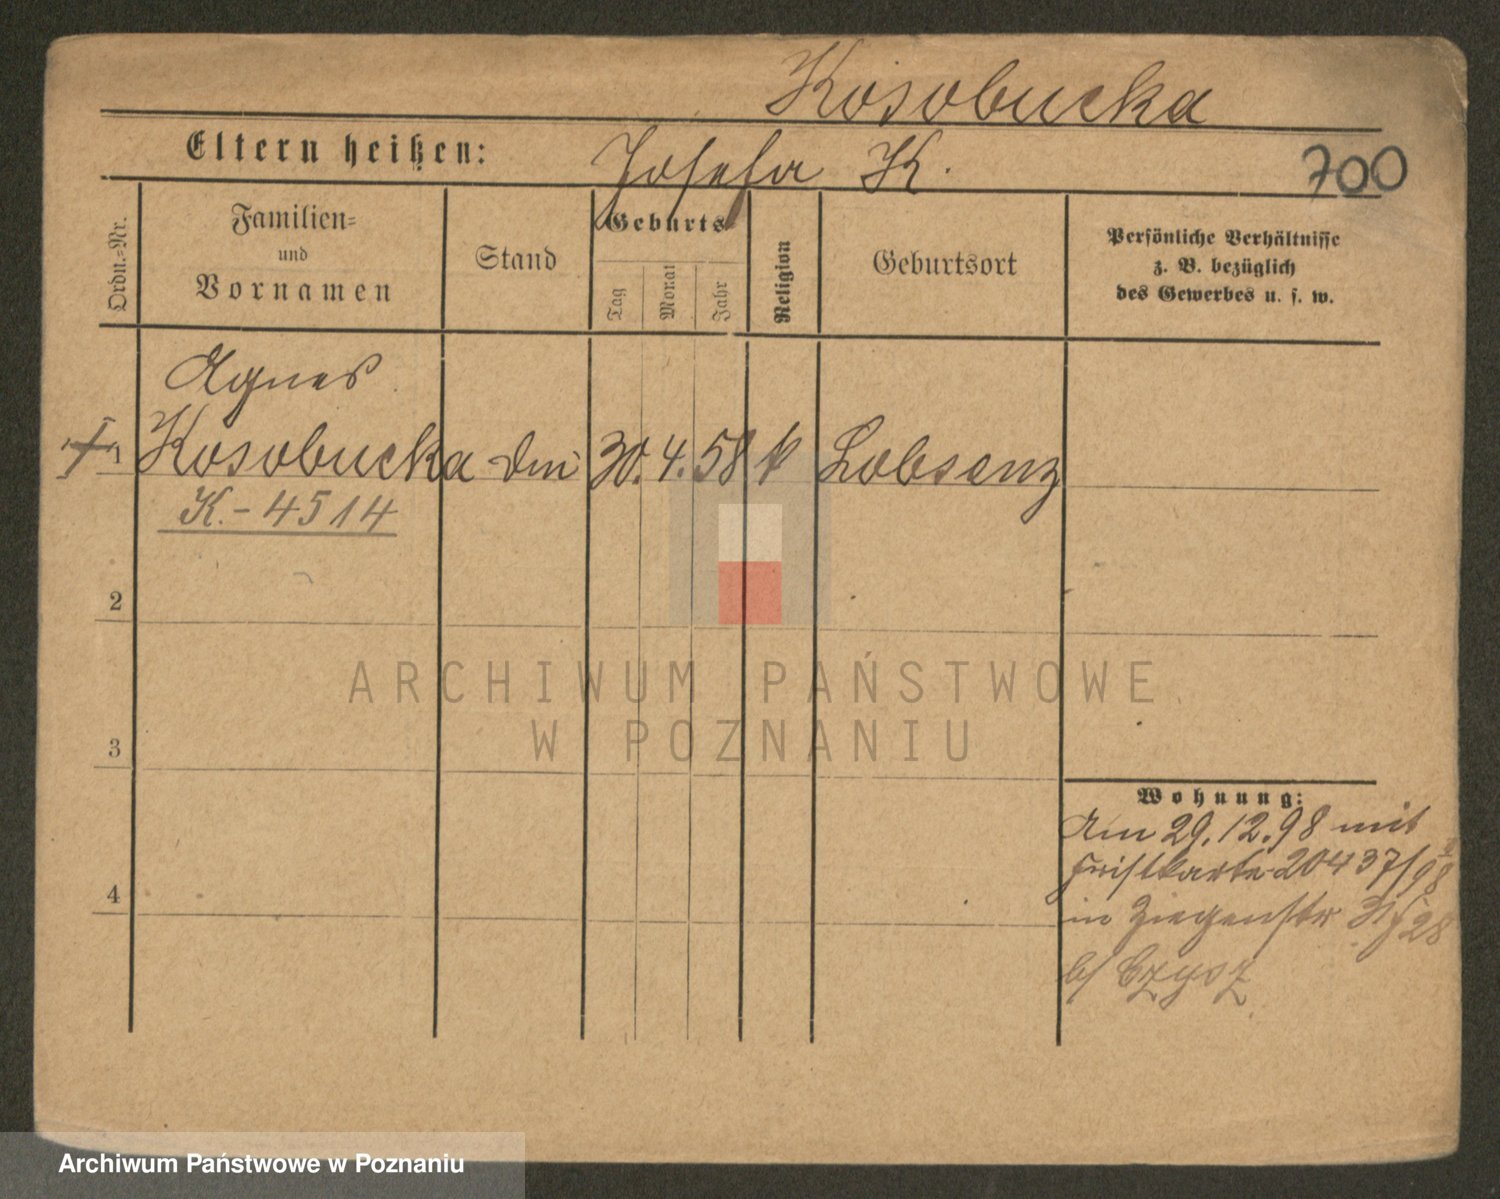 Kosobucka
Eltern heißen:
Josefa K.
700
Ordn.-Nr.
Familien-
und
Vornamen
Stand
Geburts
Tag
Monat
Jahr
Religion
Geburtsort
Persönliche Verhältnisse
z. B. bezüglich
des Gewerbes u. s. w.
Agnes
1 Kosobucka 30. 4. 58 k Lobsenz
K.- 4514
2
ARCHIWUM PAŃSTWOWE
W POZNANIU
3
4
Wohnung:
Am 29.12.98 mit
Fristkarte 20437/98
in Ziegenstr
b/ Czysz
Archiwum Państwowe w Poznaniu